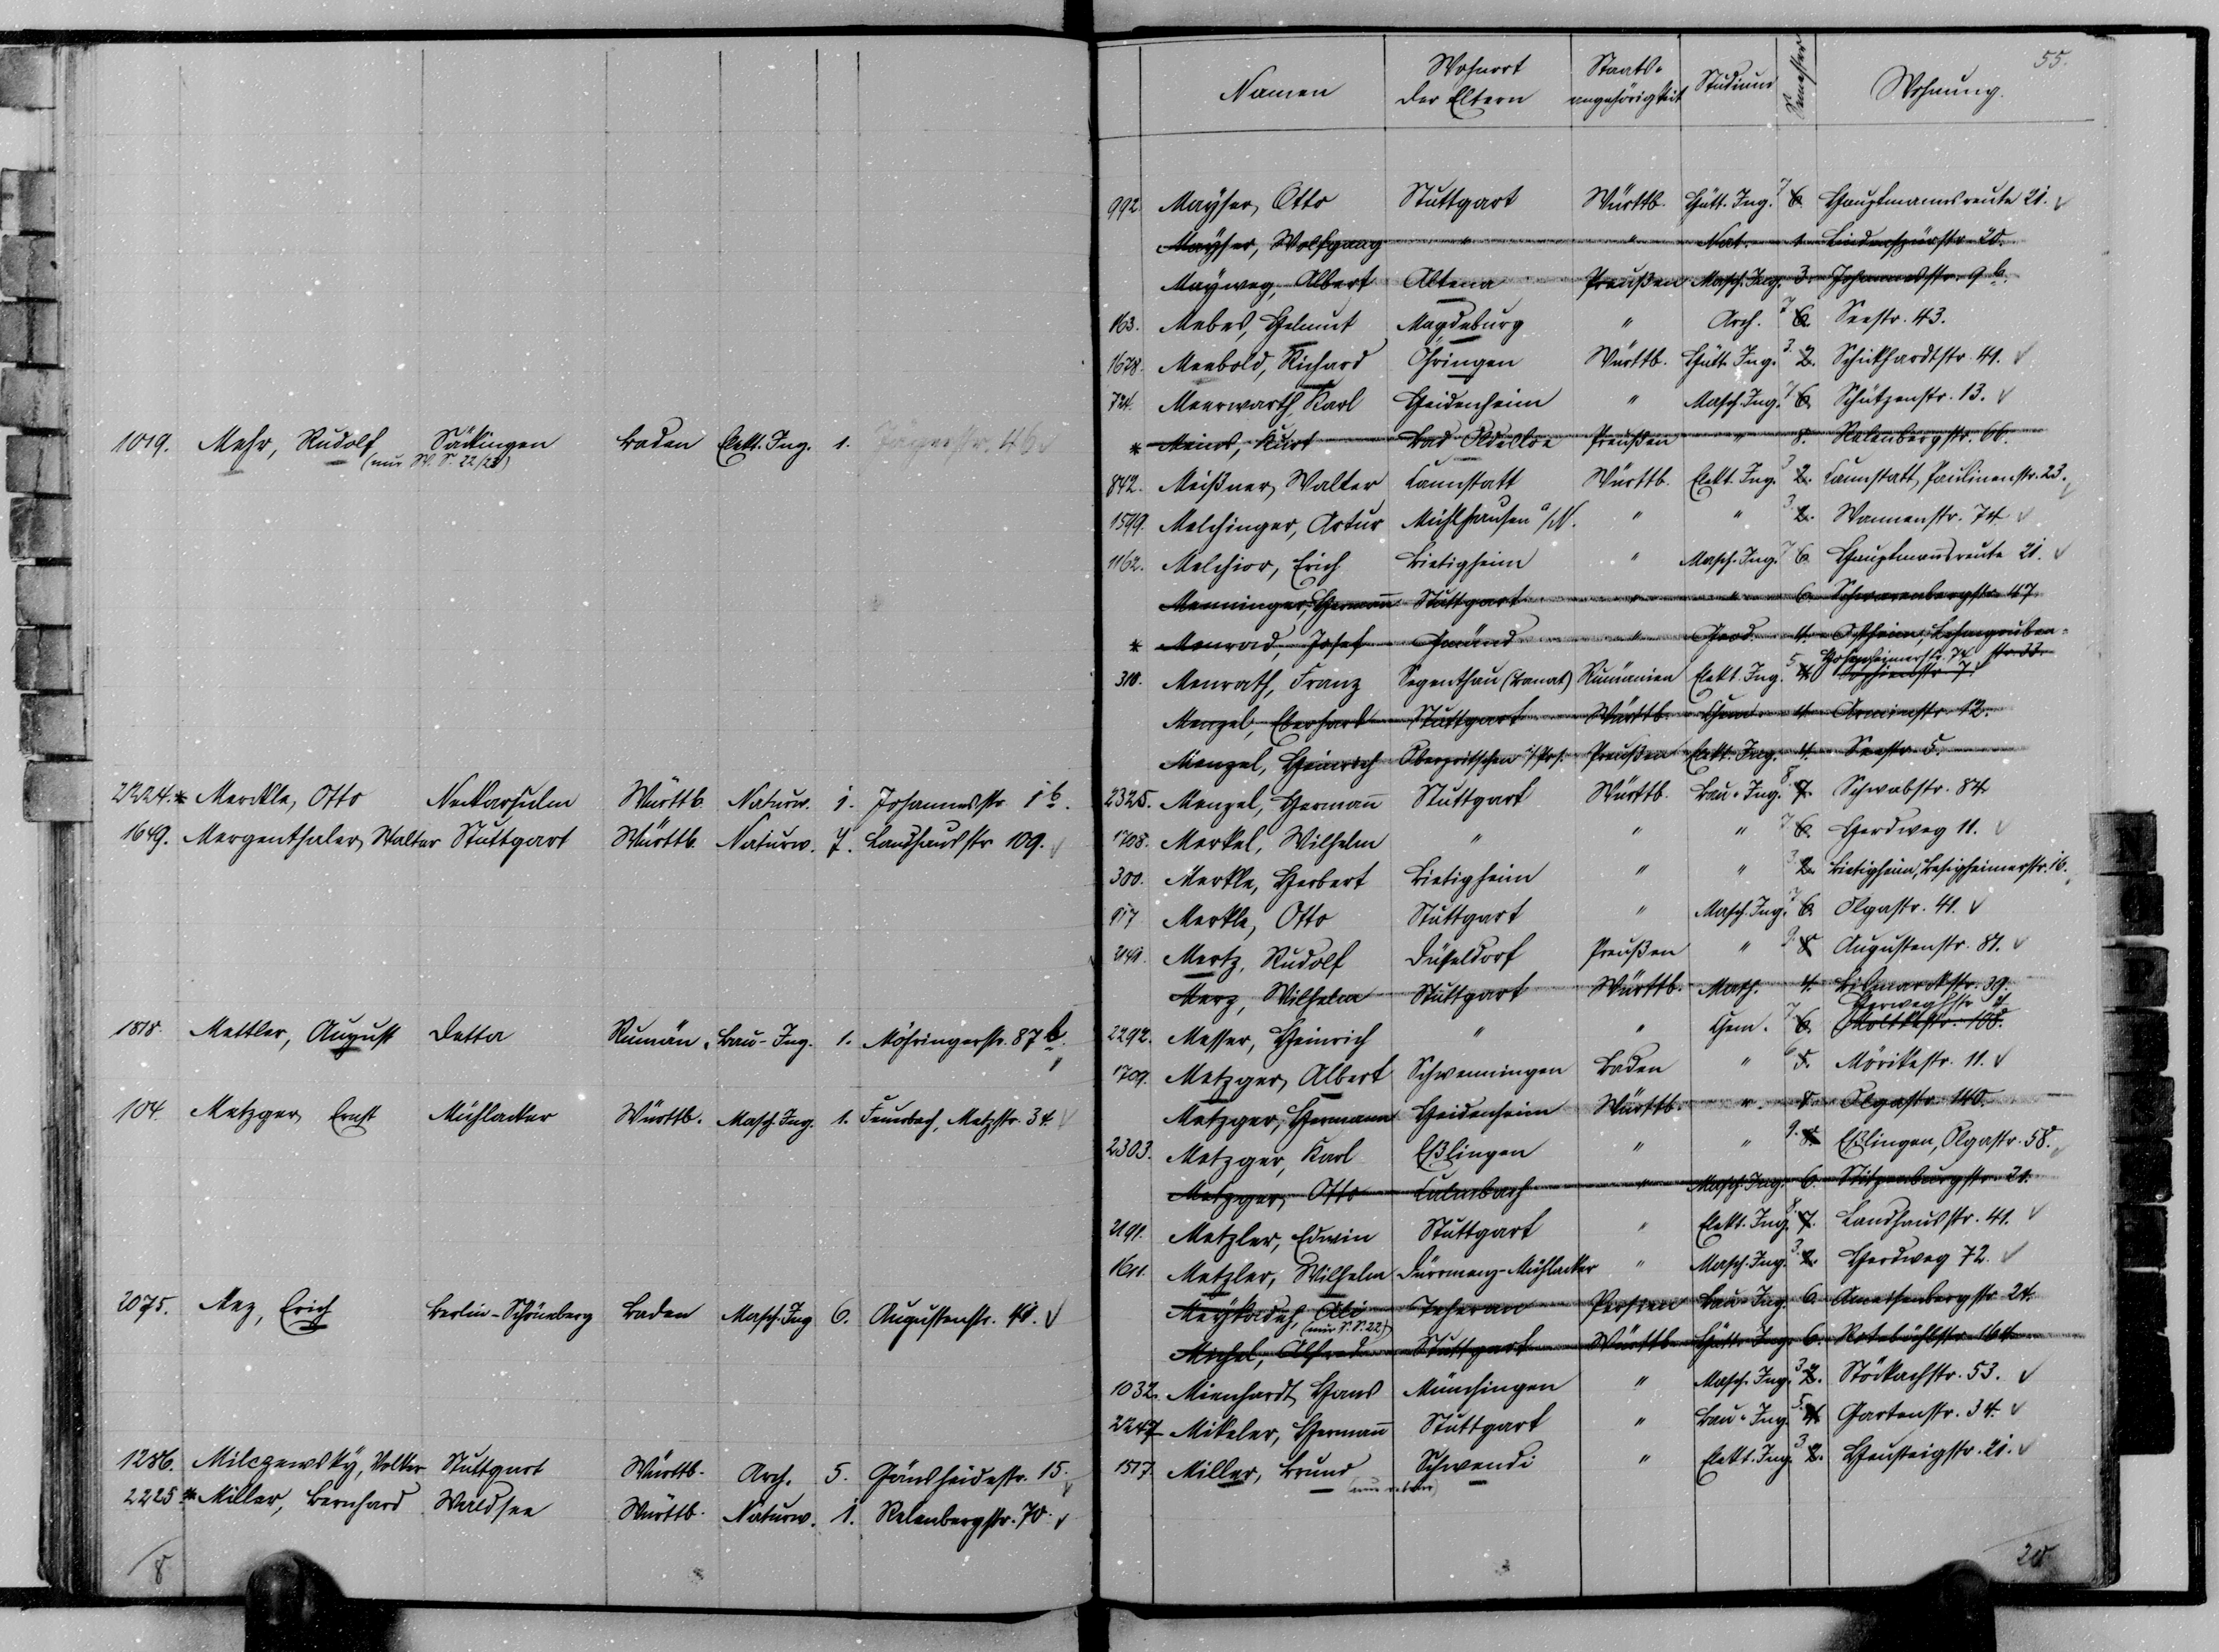 1019. Mehr, Rudolf Säckingen Baden Elekt. Ing. 1. Jägerstr. 46
(nur W. S. 22/23)
2224. * Merckle, Otto Neckarsulm Württb. Naturw. 1. Johannesstr. 1 b.
1649. Mergenthaler, Walter Stuttgart Württb. Naturw. 7. Landhausstr. 109. ✓
1818. Mettler, August Detta Rumän. Bau-Ing. 1. Möhringerstr. 87 b.
104 Metzger, Ernst Mühlacker Württb. Masch. Ing. 1. Feuerbach, Metzstr. 34. ✓
2075. Mez, Erich Berlin-Schöneberg Baden Masch. Ing 6. Augustenstr. 41. ✓
1286. Milczewsky, Volker Stuttgart Württb. Arch. 5. Gänsheidestr. 15. ✓
2225 * Miller, Bernhard Waldsee Württb. Naturw. 1. Relenbergstr. 70. ✓
8
55.
Namen Wohnort der Eltern Staats-angehörigkeit Studium Semester Wohnung.
992. Mayser, Otto Stuttgart Württb. Hütt. Ing. 7 6. Hauptmannsreute 21. ✓
Mayser, Wolfgang " " Nat. 1. Lindenspürstr. 20.
Mayweg, Albert Altena Preußen Masch. Ing. 3. Johannesstr. 9 b.
163. Mebes, Helmut Magdeburg " Arch. 7 6. Seestr. 43.
1678. Meebold, Richard Öhringen Württb. Hütt. Ing. 3. 2. Schickhardtstr. 41. ✓
724. Meerwarth, Karl Heidenheim " Masch. Ing. 7 6. Schützenstr. 13. ✓
* Meins, Kurt Bad Oldesloe Preußen " 8. Relenbergstr. 66.
842. Meißner, Walter Cannstatt Württb. Elekt. Ing. 3 2. Cannstatt, Paulinenstr. 23. ✓
1599. Melchinger, Artur Mühlhausen a/N. " " 3. 2. Wannenstr. 74 ✓
1162. Melchior, Erich Bietigheim " Masch. Ing. 7 6. Hauptmannsreute 21. ✓
Menninger, Hermann Stuttgart " " 6. Schwarenbergstr. 47.
* Menrad, Josef Gmünd " Geod. 4. Ostheim, Lehmgruben-
Hohenheimerstr. 74 str. 33.
310. Menrath, Franz Segenthau (Banat) Rumänien Elekt. Ing. 5 4. Sophienstr. 7.
Menzel, Eberhard Stuttgart Württb. Chem. 4. Arminstr. 12.
Menzel, Heinrich Oberpritschen i/Pos. Preußen Elekt. Ing. 4. Seestr. 5.
2325. Menzel, Hermann Stuttgart Württb. Bau-Ing. 8. 7. Schwabstr. 84
1708. Merkel, Wilhelm " " " 7 6. Herdweg 11. ✓
300. Merkle, Herbert Bietigheim " " 3. 2. Bietigheim, Besigheimerstr. 16.
517 Merkle, Otto Stuttgart " Masch. Ing. 7 6. Olgastr. 41. ✓
2141. Mertz, Rudolf Düsseldorf Preußen " 9. 8 Augustenstr. 81. ✓
Merz, Wilhelm Stuttgart Württb. Math. 4. Bismarckstr. 39.
Herweghstr. 4
2292. Messer, Heinrich " " Chem. 7 6. Moltkestr. 108.
1709. Metzger, Albert Schwenningen Baden " 6 5. Mörikestr. 11. ✓
Metzger, Hermann Heidenheim Württb. " 8. Olgastr. 140.
2303. Metzger, Karl Eßlingen " " 9. 8. Eßlingen, Olgastr. 58. ✓
Metzger, Otto Culmbach " Masch. Ing. 6. Stitzenburgstr. 21.
2191. Metzler, Edwin Stuttgart " Elekt. Ing. 8. 7. Landhausstr. 41. ✓
1611. Metzler, Wilhelm Dürrmenz-Mühlacker " Masch. Ing. 3. 2. Herdweg 72. ✓
Meykadeh, Ali Teheran Persien Bau-Ing. 6. Ameisenbergstr. 24.
(nur S. S. 22)
Michel, Alfred Stuttgart Württb. Hütt. Ing. 6. Rotebühlstr. 164
1032. Mienhardt, Hans Münchingen " Masch. Ing. 3 2. Stöckachstr. 53. ✓
2247 Mikeler, Hermann Stuttgart " Bau-Ing. 5. 4. Gartenstr. 34. ✓
1517. Miller, Bruno Schwendi " Elekt. Ing. 3 2. Heusteigstr. 21. ✓
20